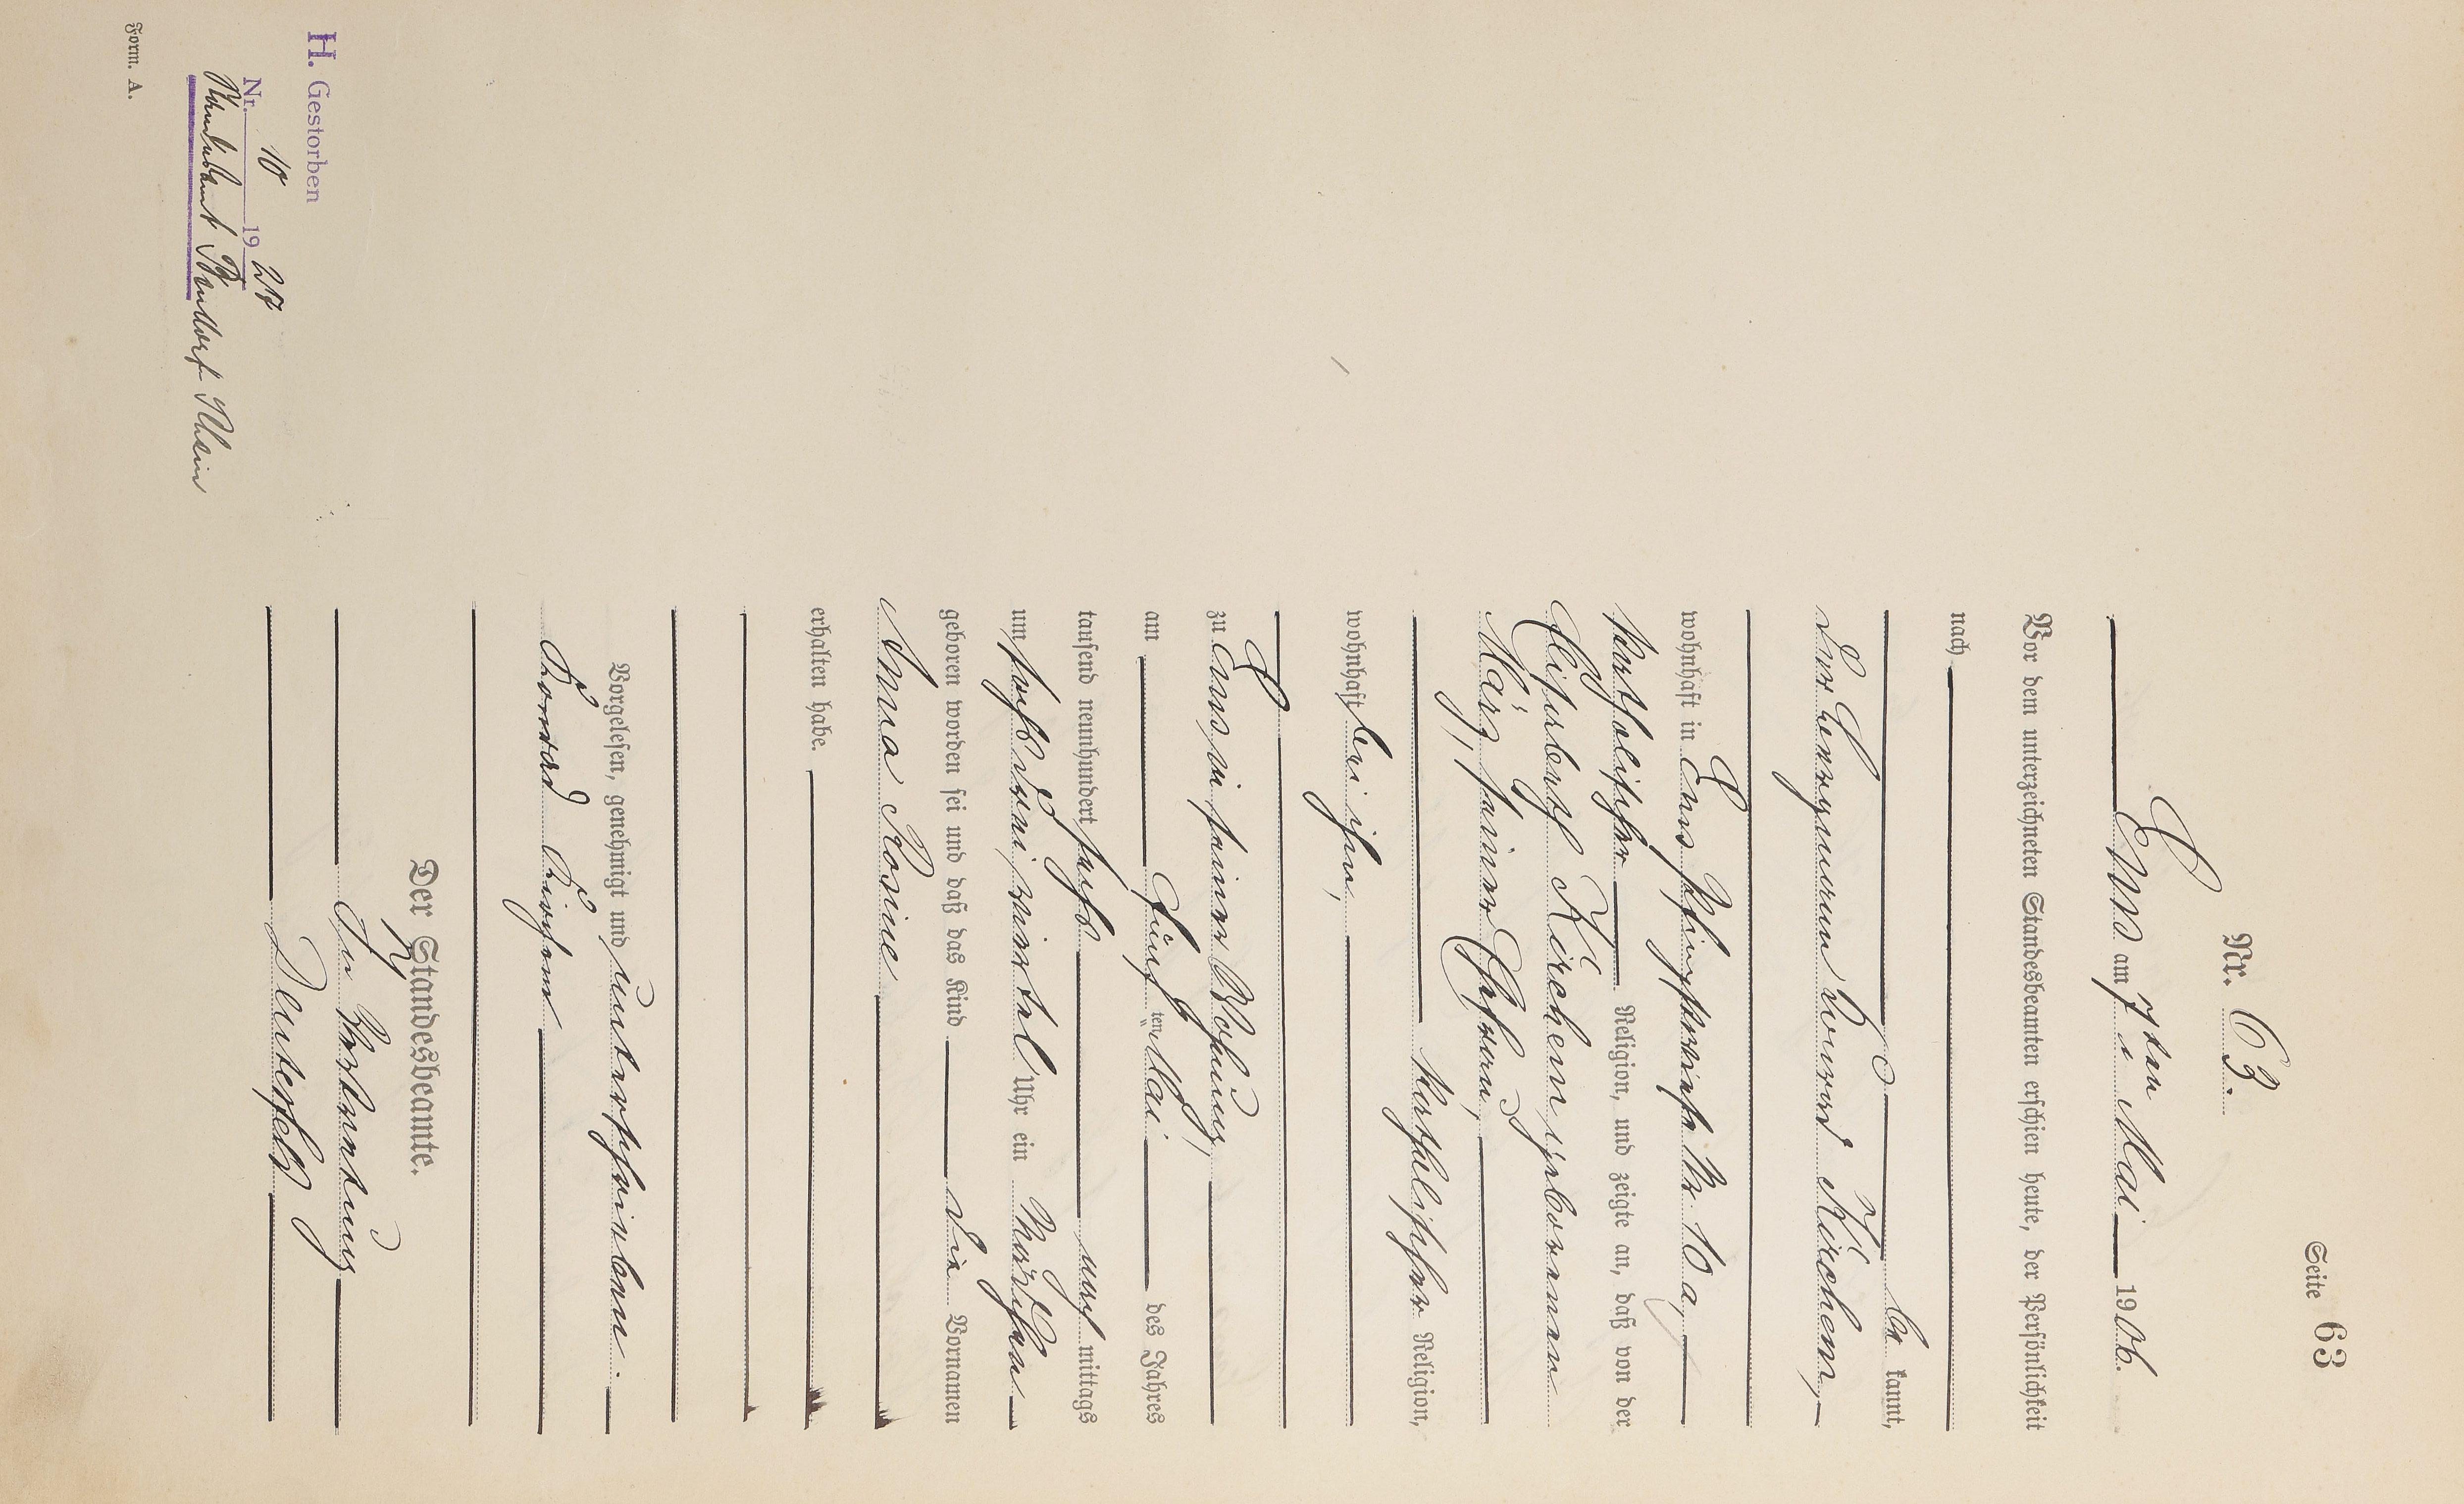 Seite 63
Nr. 63.
Ems am 7ten Mai 1906.
Vor dem unterzeichneten Standesbeamten erschien heute, der Persönlichkeit
nach
be kannt,
der Bergmann Konrad Kirchem,
wohnhaft in Ems, Pfingstwiese No 10 a,
katholischer Religion, und zeigte an, daß von der
Elisabeth Kirchem geborenen
März, seiner Ehefrau,
katholischer Religion,
wohnhaft bei ihm,
zu Ems, in seiner Wohnung,
am fünften Mai des Jahres
tausend neunhundert sechs nach mittags
um sechs dreiviertel Uhr ein Mädchen
geboren worden sei und daß das Kind die Vornamen
Anna Rosine
erhalten habe.
Vorgelesen, genehmigt und unterschrieben.
Konrad Kirchem
Der Standesbeamte.
In Vertretung
H. Gestorben
Nr. 10 1927
Standesamt Bendorf Rhein
Form. A.